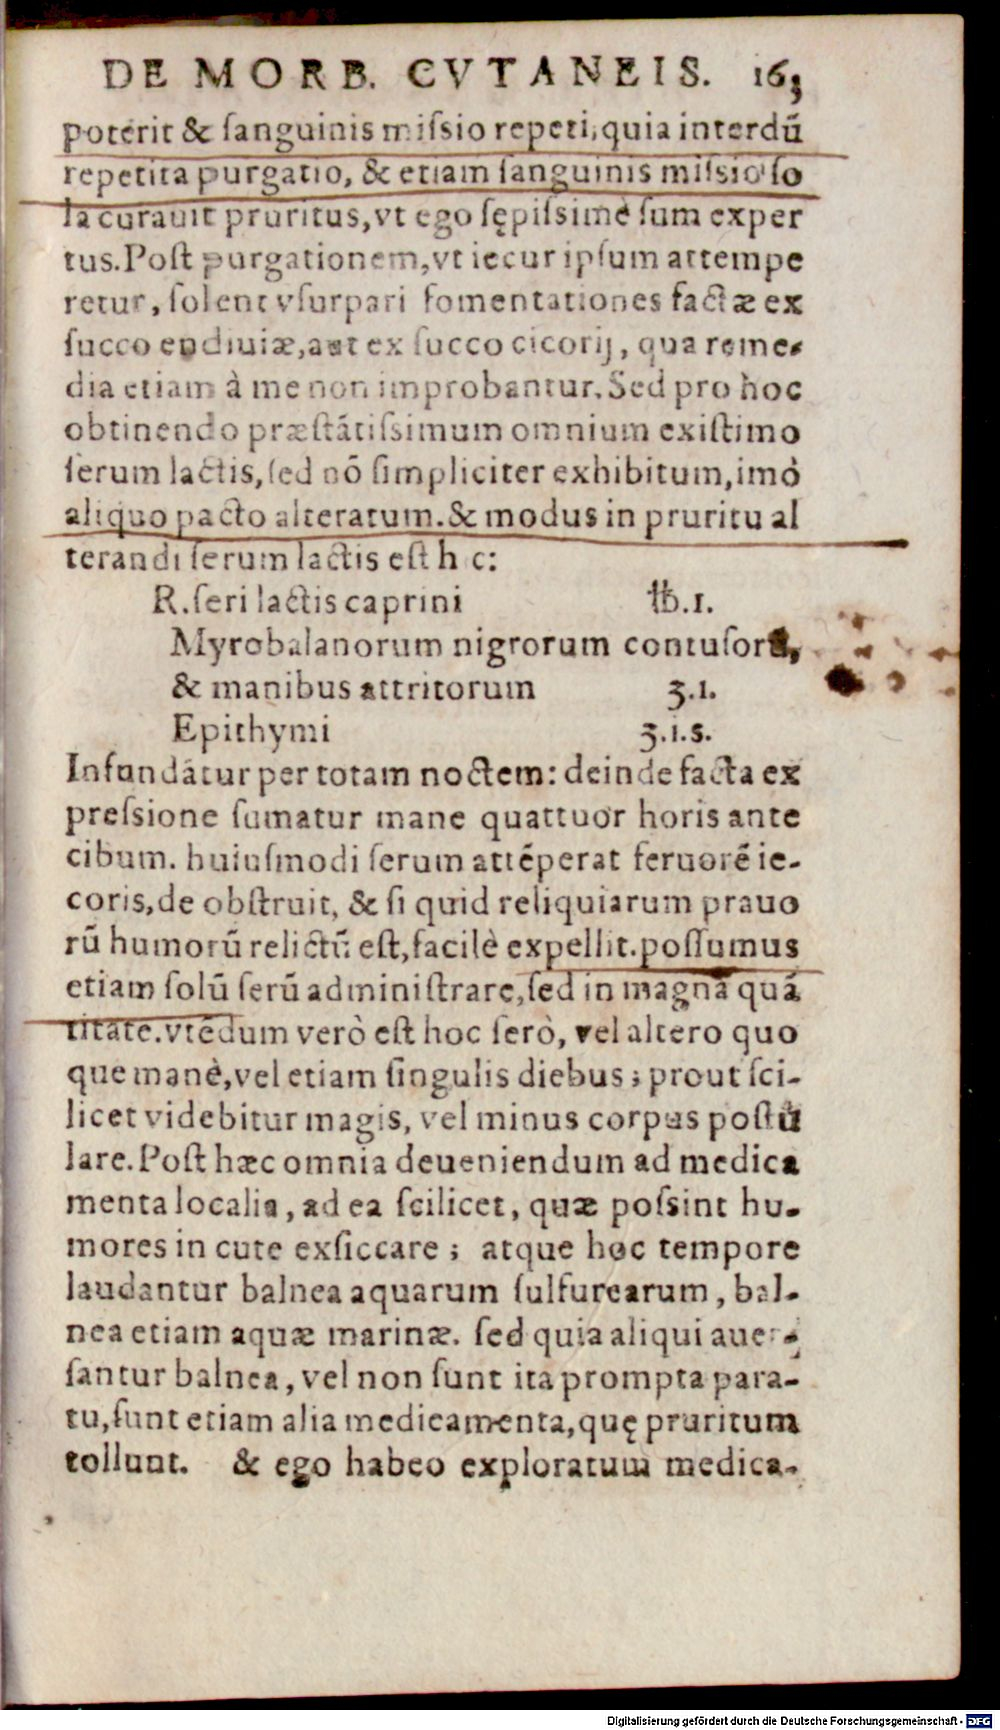 DE MORB. CVTANEIS. 16;
poterit & ſanguinis miſsio repeti, quia interdū
repetita purgatio, & etiam ſanguinis miſsio ſo
la curauit pruritus, vt ego ſępiſsimè ſum exper
tus. Poſt purgationem, vt iecur ipſum attempe
retur, ſolent vſurpari fomentationes factæ ex
ſucco endiuiæ, aut ex ſucco cicorij, qua reme-
dia etiam à me non improbantur. Sed pro hoc
obtinendo præſtātiſsimum omnium exiſtimo
ſerum lactis, ſed nō ſimpliciter exhibitum, imò
aliquo pacto alteratum. & modus in pruritu al
terandi ſerum lactis eſt h c:
R. ſeri lactis caprini ℔.1.
Myrobalanorum nigrorum contuſorū,
& manibus attritorum ʒ.1.
Epithymi ʒ.1.s.
Infundātur per totam noctem: deinde facta ex
preſsione ſumatur mane quattuor horis ante
cibum. huiuſmodi ſerum attēperat feruorē ie-
coris, de obſtruit, & ſi quid reliquiarum prauo
rū humorū relictū eſt, facilè expellit. poſſumus
etiam ſolū ſerū adminiſtrare, ſed in magna quā
titate. vtēdum verò eſt hoc ſerò, vel altero quo
que manè, vel etiam ſingulis diebus; prout ſci-
licet videbitur magis, vel minus corpus poſtu
lare. Poſt hæc omnia deueniendum ad medica
menta localia, ad ea ſcilicet, quæ poſsint hu-
mores in cute exſiccare; atque hoc tempore
laudantur balnea aquarum ſulfurearum, bal-
nea etiam aquæ marinæ. ſed quia aliqui auer-
ſantur balnea, vel non ſunt ita prompta para-
tu, ſunt etiam alia medicamenta, quę pruritum
tollunt. & ego habeo exploratum medica-
Digitalisierung gefördert durch die Deutsche Forschungsgemeinschaft - DFG